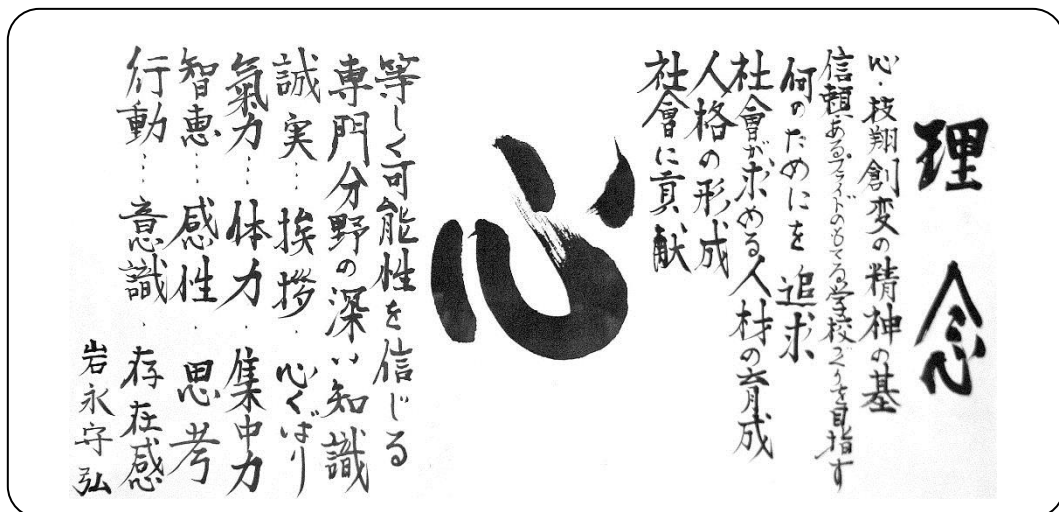 理念
心・技翔創変の精神の基
信頼あるプライドのもてる学校づくりを目指す
何のためにを追求
社會が求める人材の育成
人格の形成
社會に貢献
心
等しく可能性を信じる
専門分野の深い知識
誠実…挨拶・心くばり
氣力…体力・集中力
智恵…感性・思考
行動…意識・存在感
岩永守弘